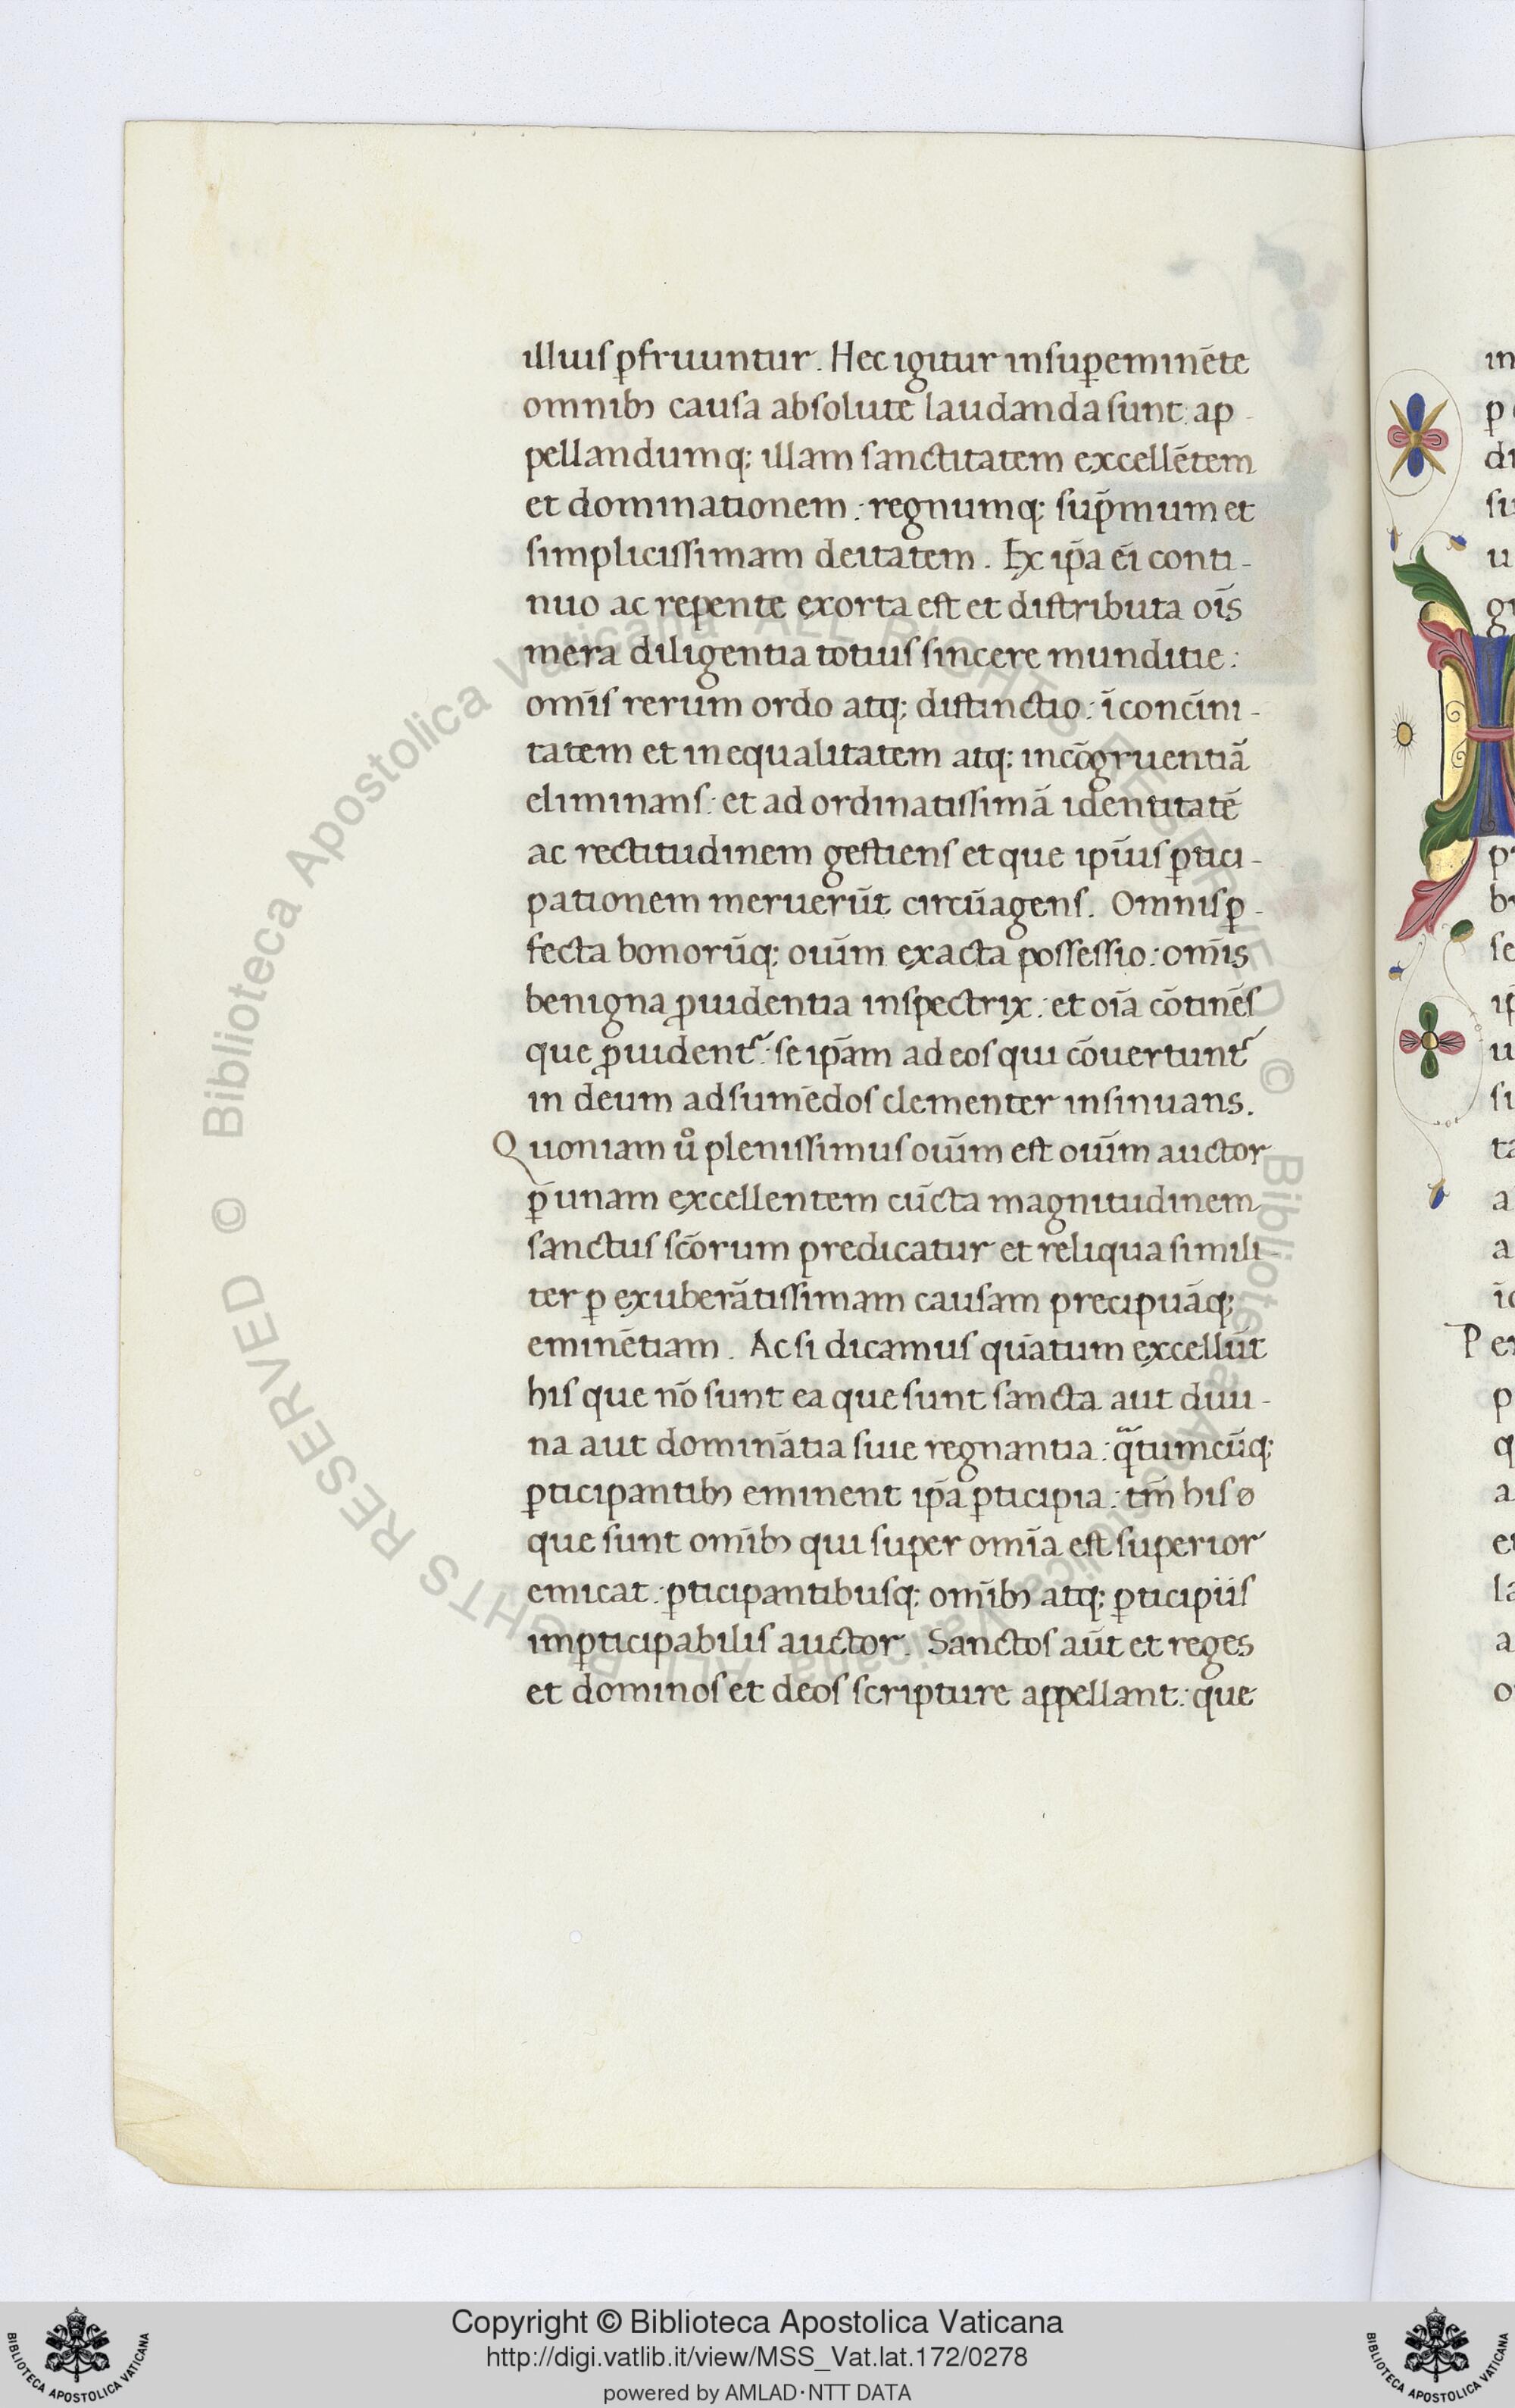 illius ꝑfruuntur. Hec igitur insuꝑeminēte
omnibꝫ causa absolute laudanda sunt: ap-
pellandumqꝫ illam sanctitatem excellētem
et dominationem: regnumqꝫ sup̄mum et
simplicissimam deitatem. Ex ip̄a ēi conti-
nuo ac repente exorta est et distributa oīs
mera diligentia totius sincere munditie:
om̄is rerum ordo atqꝫ distinctio: īconcīni-
tatem et inequalitatem atqꝫ incōgruentiā
eliminans: et ad ordinatissimā identitatē
ac rectitudinem gestiens et que ip̄ius ꝑtici-
pationem meruerūt circūagens. Omnis ꝑ-
fecta bonorūqꝫ oīum exacta possessio: om̄is
benigna ꝓuidentia inspectrix: et oīa cōtinēs
que ꝓuident᷑: se ip̄am ad eos qui cōuertunt᷑
in deum adsumēdos clementer insinuans.
Quoniam uͦ plenissimus oīum est oīum auctor
ꝑ unam excellentem cūcta magnitudinem
sanctus scōrum predicatur et reliqua simili-
ter ꝑ exuberātissimam causam precipuāqꝫ
eminētiam. Ac si dicamus quātum excellūt
his que nō sunt ea que sunt sancta aut diui-
na aut dominātia siue regnantia: qᷓtumcūqꝫ
ꝑticipantibꝫ eminent ip̄a ꝑticipia: tm̄ his ø
que sunt omībꝫ qui super omīa est superior
emicat: ꝑticipantibusqꝫ omībꝫ atqꝫ ꝑticipiis
imꝑticipabilis auctor. Sanctos aūt et reges
et dominos et deos scripture appellant: que
Copyright © Biblioteca Apostolica Vaticana
http://digi.vatlib.it/view/MSS_Vat.lat.172/0278
powered by AMLAD·NTT DATA